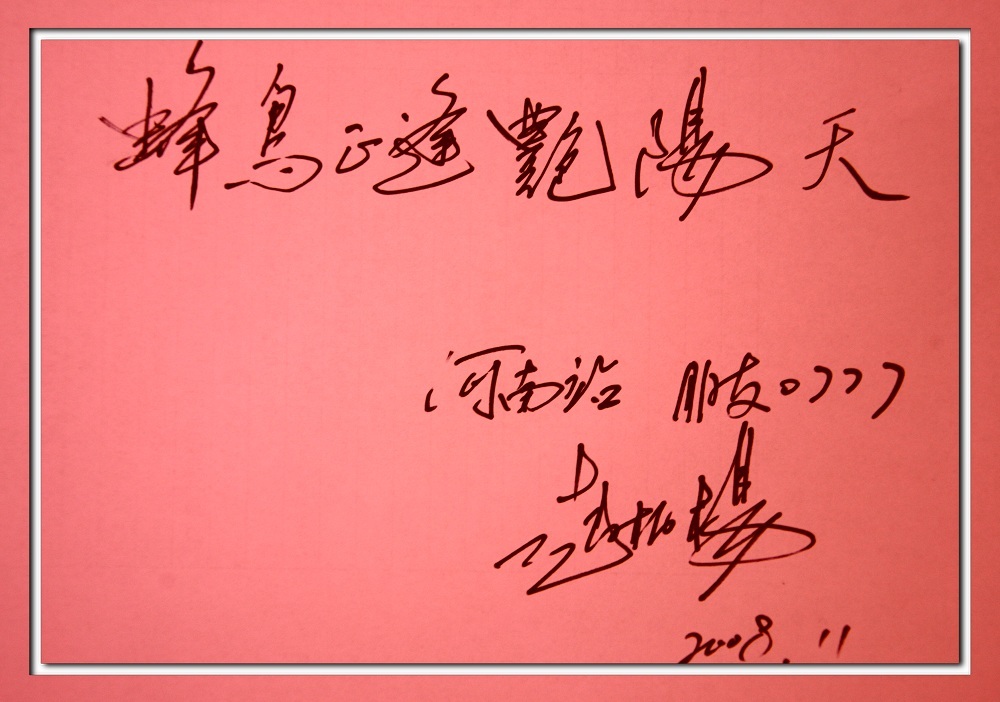 蜂鳥正逢艷陽天
河南站 朋友0777
2008.11